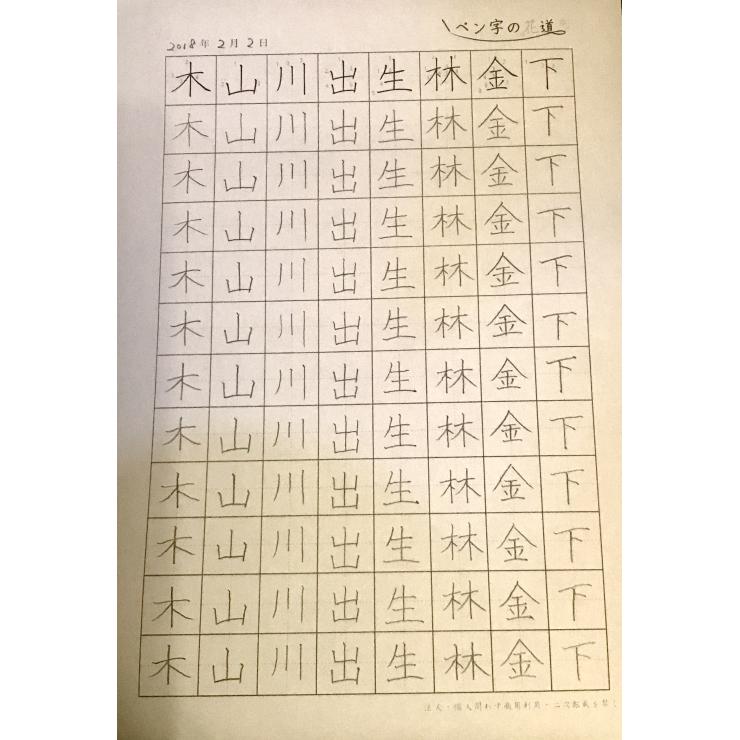 ペン字の花道
2018年2月2日
木山川出生林金下
木山川出生林金下
木山川出生林金下
木山川出生林金下
木山川出生林金下
木山川出生林金下
木山川出生林金下
木山川出生林金下
木山川出生林金下
木山川出生林金下
木山川出生林金下
木山川出生林金下
法人・個人問わず商用利用・二次配載を禁じ